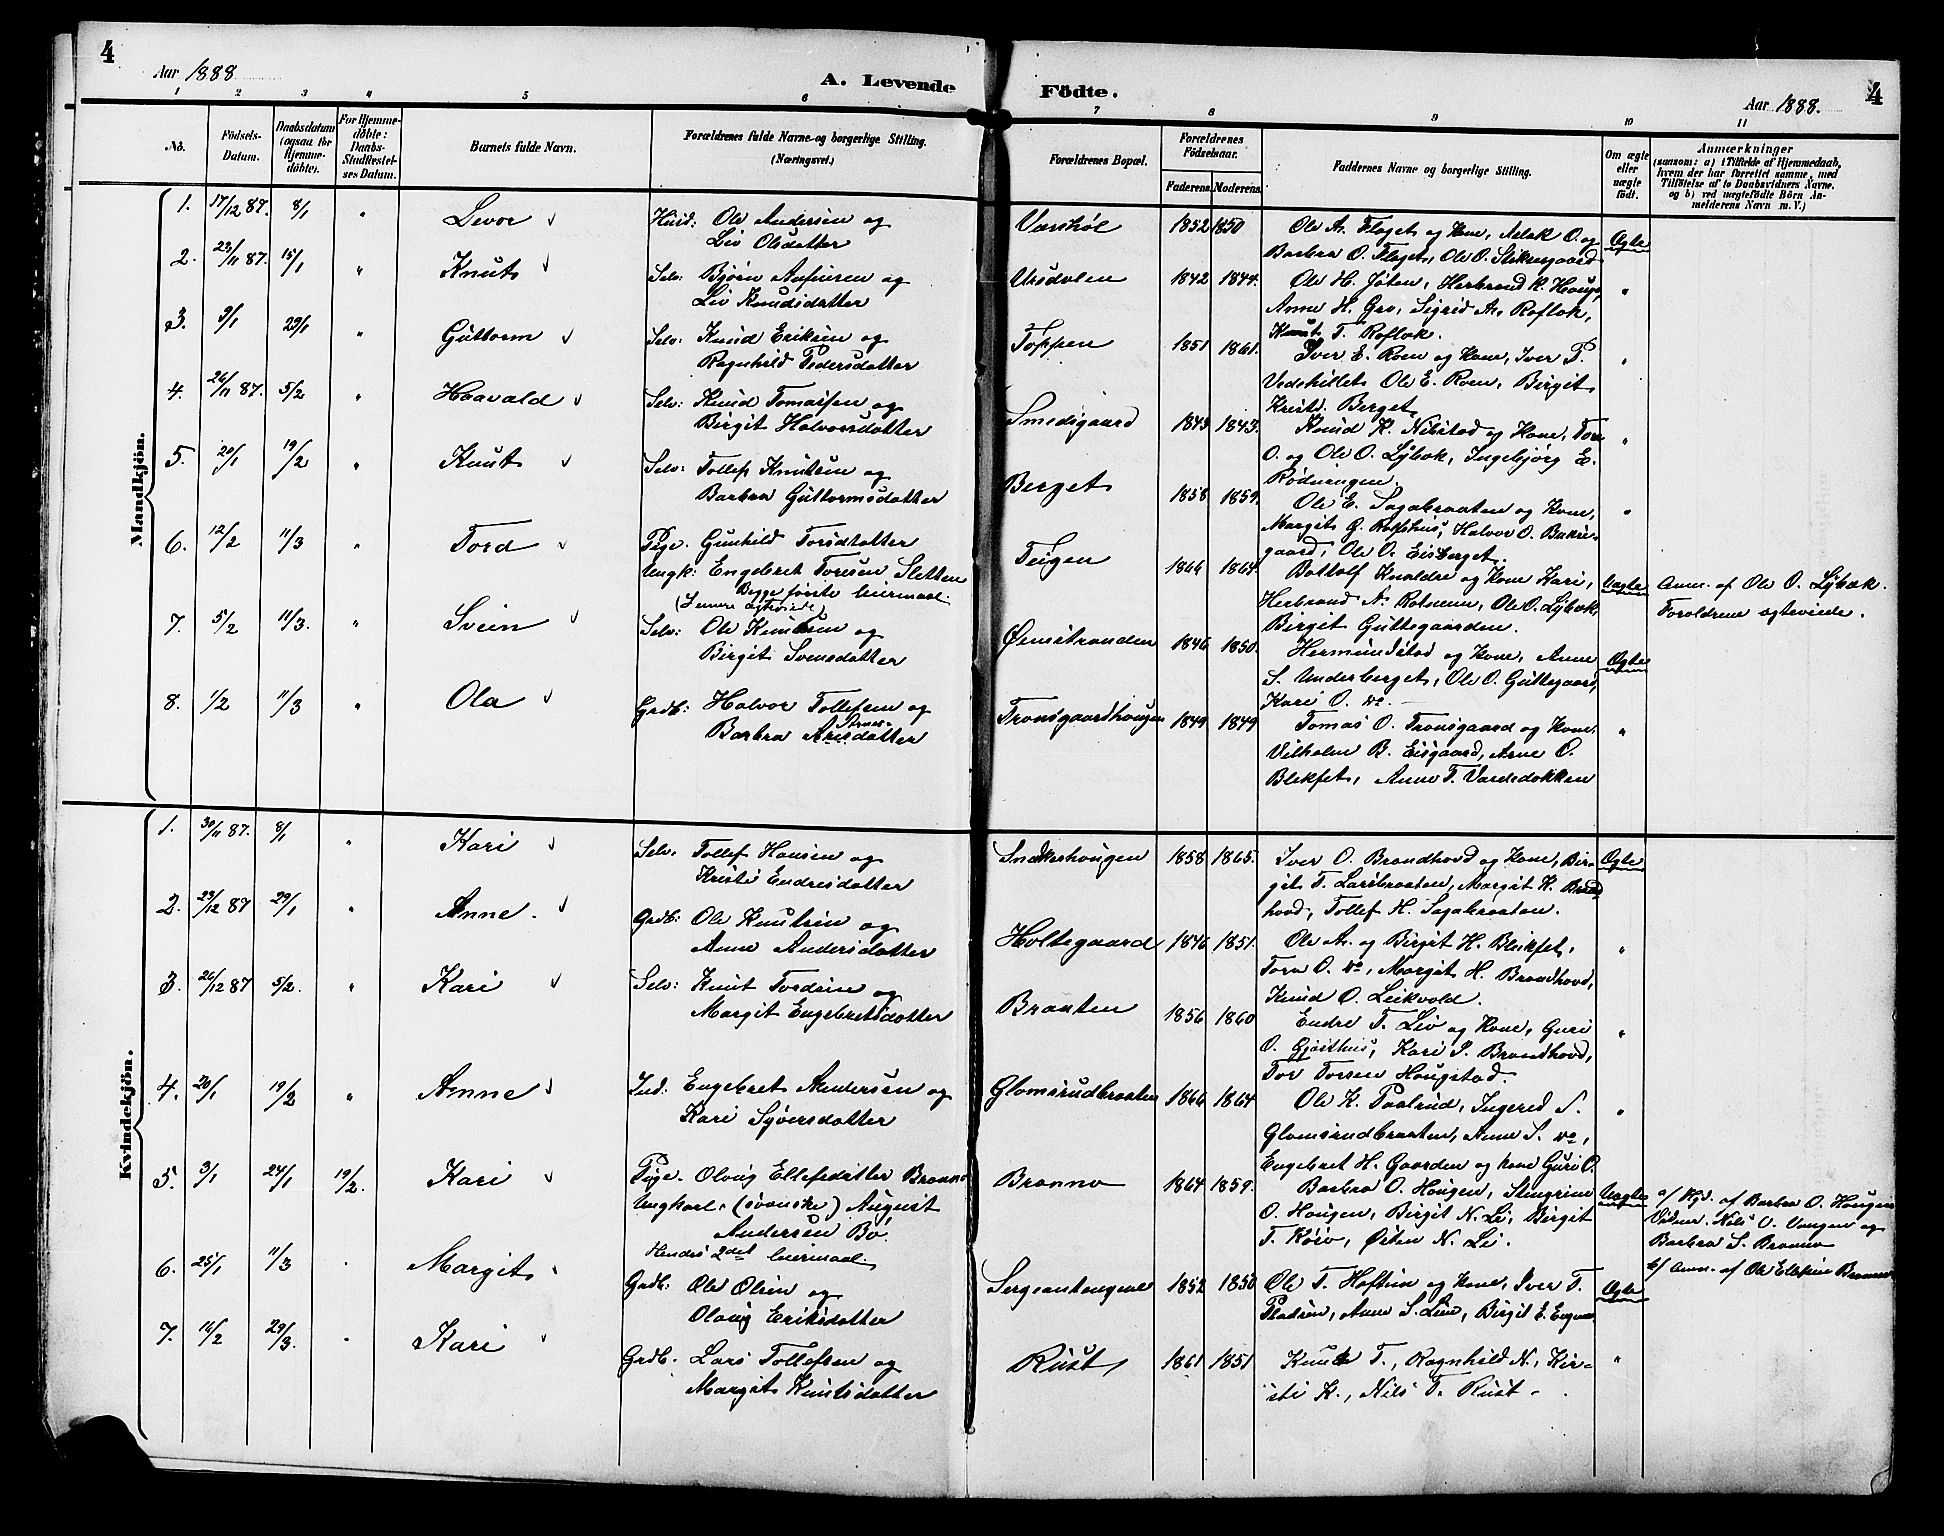 4
Aar 1888.
A. Levende
Födte.
Aar 1888.
4
1 2 3 4 5 6 7 8 9 10 11
No.
Födsels-
Datum.
Daabsdatum
(ogsaa for
Hjemme-
döbte).
For Hjemme-
döbte:
Daabs-
Stadfæstel-
ses Datum.
Barnets fulde Navn.
Forældrenes fulde Navne og borgerlige Stilling.
(Næringsvei.)
Forældrenes Bopæl.
Forældrenes
Födselsaar.
Faderens. Moderens.
Faddernes Navne og borgerlige Stilling.
Om ægte
eller
uægte
födt.
Anmærkninger
(saasom: a) i Tilfælde af Hjemmedaab,
hvem der har forrettet samme, med
Tilföielse af to Daabsvidners Navne,
og b) ved uægtefödte Börn An-
melderens Navn m. V.)
Mandkjön.
1. 17/12 87. 8/1 " Levor Husd: Ole Andersen og
Liv Olsdatter
1852 1850
Ole A. Flaget og Kone, Aslak O. og
Barbra O. Flaget, Ole O.
Ægte
2. 23/11 87. 15/1 " Knut Selv: Bjørn
Liv Knudsdatter
Ursdalen 1842 1844.
Ole H. Jøten, Herbrand K. Houge,
Anne H. Gro, Sigrid A. Roflok,
Knut T. Roflok.
"
3. 9/1 29/1 " Guttorm Selv: Knud Eriksen og
Ragnhild Pedersdatter
Toppen 1851 1861.
Iver E. Roen og Kone, Iver T.
Vedehillet, Ole E. Roen, Birgit
Kristd. Berget
"
4. 26/11 87. 5/2 " Haavald Selv: Knud Tomassen og
Birgit Halvorsdatter
Smedsgaard 1843 1843.
Knud K. Nibstad og Kone, Tore
O. og Ole O. Lybæk, Ingebjørg E.
Rødningen.
"
5. 20/1 19/2 " Knut Selv: Tollef Knutsen og
Barbra Guttormsdatter
Berget 1858 1859.
Ole E. Sagabraaten og Kone,
Margit G. Rolfshus, Halvor O. Bakke-
gaard, Ole O. Eisberget.
"
6. 12/2 11/3 " Tord Pige. Gunhild Torsdatter
Ungk: Engebret Toresen Sletten
Begge første leiermaal.
(Senere ægteviede)
Teigen 1866 1864.
Bottolf Knaldre og Kone Kari,
Herbrand N. Rotneim, Ole O. Lybæk,
Birgit Guttegaarden.
Uægte
Anm. af Ole O. Lybæk.
Forældrene ægteviede.
7. 5/2 11/3. " Svein Selv: Ole Knutsen og
Birgit Svensdatter
Øenstranden 1846 1850.
Hermundstad og Kone, Anne
S. Underberget, Ole O. Guttegaard,
Kari O. do.
Ægte
8. 1/2 11/3 " Ola Grdb: Halvor Tollefsen og
Barbra Arnesdatter
Tronsgaardhougen 1849 1849
Tomas O. Tronsgaard og Kone,
Vilhelm B. Eisgaard, Arne O.
Blekfet, Anne T. Vardedokken
"
Kvindekjön.
1. 30/11 87. 8/1 " Kari Selv. Tollef Hansen og
Kristi Endresdatter
Snekerhougen 1858 1865.
Iver O. Brandhovd og Kone, Bir-
git T. Larsbraaten, Margit K. Brand-
hovd, Tollef H. Sagabraaten.
Ægte
2. 23/12 87 29/1 " Anne. Grdb: Ole Knutsen og
Anne Andersdatter
Holtegaard 1846 1851.
Ole A. og Birgit H. Blekfet,
Tora O. do, Margit H. Brandhovd,
Knud O. Leikvold.
"
3. 26/12 87 5/2. " Kari Selv: Knut Tordsen og
Margit Engebretsdatter
Braaten 1856 1860
Endre T. Liv og Kone, Guri
O. Gjesthus, Kari S. Brandhovd,
Tor Torsen Hougstad.
"
4. 20/1 19/2 " Anne Ind: Engebret Andersen og
Kari Syversdatter
Glomsrudbraaten 1866 1864
Ole K. Paalrud, Ingerid S.
Glomsrudbraaten, Anne S. do,
Engebret H. Gaarden og Kone Guri O.
"
5. 3/1 24/1 19/2. Kari Pige. Olaug Ellefsdatter Bronno
Ungkarl. (svenske) August
Andersen Bø.
Hendes 2det leiermaal.
Bronno 1864 1859.
Barbra O. Hougen, Steingrim
O. Hougen, Birgit N. Li, Birgit
T. Kørv, Østen N. Li.
Uægte
a/ Hjd. af Barbra O. Hougen
Vidner. Nils O. Vangen og
Barbra S. Bronno
b/ Anm. af Ole Elefsen Bronno
6. 25/1 11/3 Margit Grdb: Ole Olsen og
Olaug Eriksdatter
Sergeantengene 1852 1850
Ole T. Haftun og Kone, Iver T.
Pladsen, Anne S. Lien, Birgit E.
Ægte
7. 16/2 29/3. " Kari Grdb. Lars Tollefsen og
Margit Knutsdatter
Rust 1861 1851
Knut T., Ragnhild N., Kir-
sti K., Nils T. Rust.
"